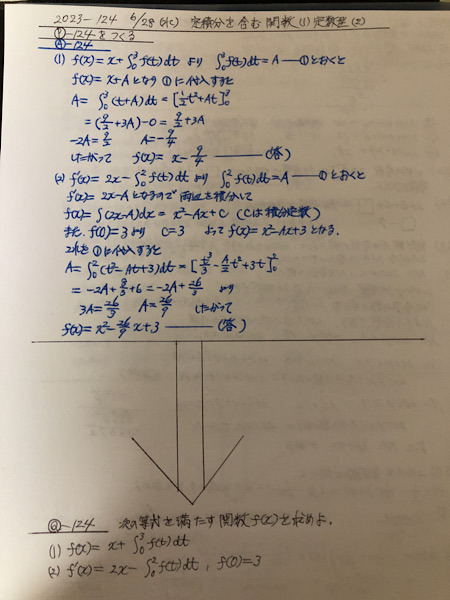 2023-124 6/28(水) 定積分を含む関数(1)定数型(2)
Q-124をつくる
A-124
(1) f(x)=x+∫₀³f(t)dt より ∫₀³f(t)dt=A ―①とおくと
f(x)=x+Aとなり ①に代入すると
A=∫₀³(t+A)dt=[1/2t²+At]₀³
=(9/2+3A)-0=9/2+3A
-2A=9/2 A=-9/4
したがって f(x)=x-9/4 ―――(答)
(2) f'(x)=2x-∫₀²f(t)dtより ∫₀²f(t)dt=A ―①とおくと
f'(x)=2x-Aとなるので両辺を積分して
f(x)=∫(2x-A)dx=x²-Ax+C (Cは積分定数)
また f(0)=3より C=3 よって f(x)=x²-Ax+3となる.
これを①に代入すると
A=∫₀²(t²-At+3)dt=[t³/3-A/2t²+3t]₀²
=-2A+8/3+6=-2A+26/3 より
3A=26/3 A=26/9 したがって
f(x)=x²-26/9x+3 ―――(答)
Q-124 次の等式を満たす関数f(x)を求めよ.
(1) f(x)=x+∫₀³f(t)dt
(2) f'(x)=2x-∫₀²f(t)dt, f(0)=3